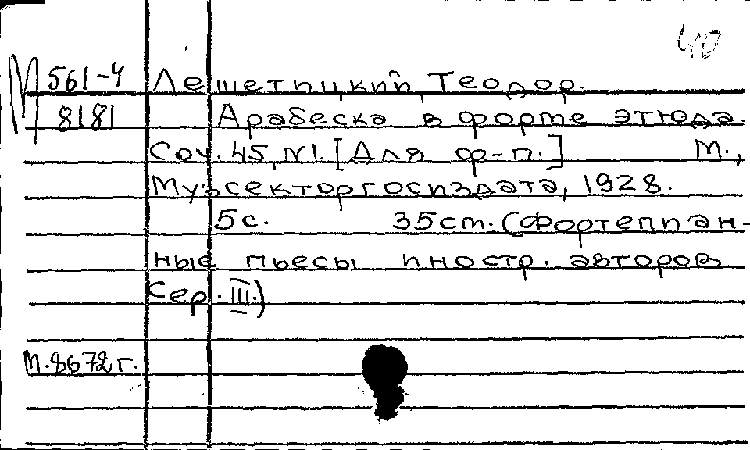 40
М 561-4 Лешетицкий, Теодор.
8181 Арабеска в форме этюда.
Соч. 45, N1. [Для ф-п.] М.,
Музсекторгосиздата, 1928.
5с. 35cm. (Фортепиан-
ные пьесы иностр. авторов
Сер. III.)
М.8672г.